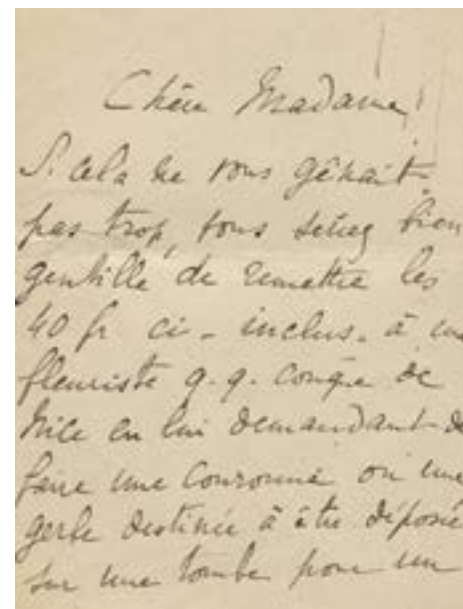 Chère Madame,
Si cela ne vous gênait
pas trop, vous seriez bien
gentille de remettre les
40 fr ci-inclus à un
fleuriste q.q. conque de
Nice en lui demandant de
faire une couronne ou une
gerbe destinée à être déposée
sur une tombe pour un